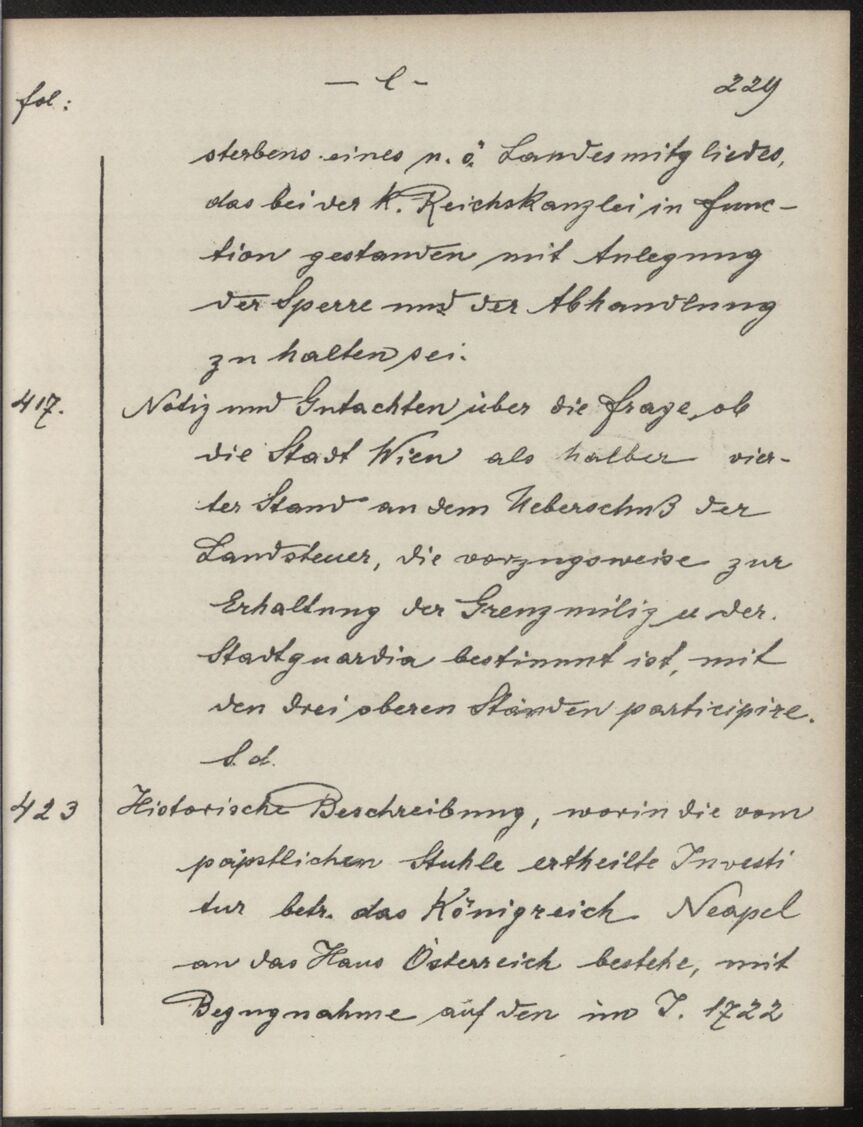 — l — 229
fol:
sterbens eines n. ö. Landesmitgliedes,
das bei der K. Reichskanzlei in Func-
tion gestanden mit Anlegung
der Sperre und der Abhandlung
zu halten sei.
417. Notiz und Gutachten über die Frage, ob
die Stadt Wien als halber vier-
ter Stand an dem Ueberschuß der
Landsteuer, die vorzugsweise zur
Erhaltung der Grenzmiliz u der
Stadtguardia bestimmt ist, mit
den drei oberen Ständen participire.
S. d.
423 Historische Beschreibung, worin die vom
päpstlichen Stuhle ertheilte Investi
tur betr. das Königreich Neapel
an das Haus Österreich bestehe, mit
Bezugnahme auf den im J. 1722